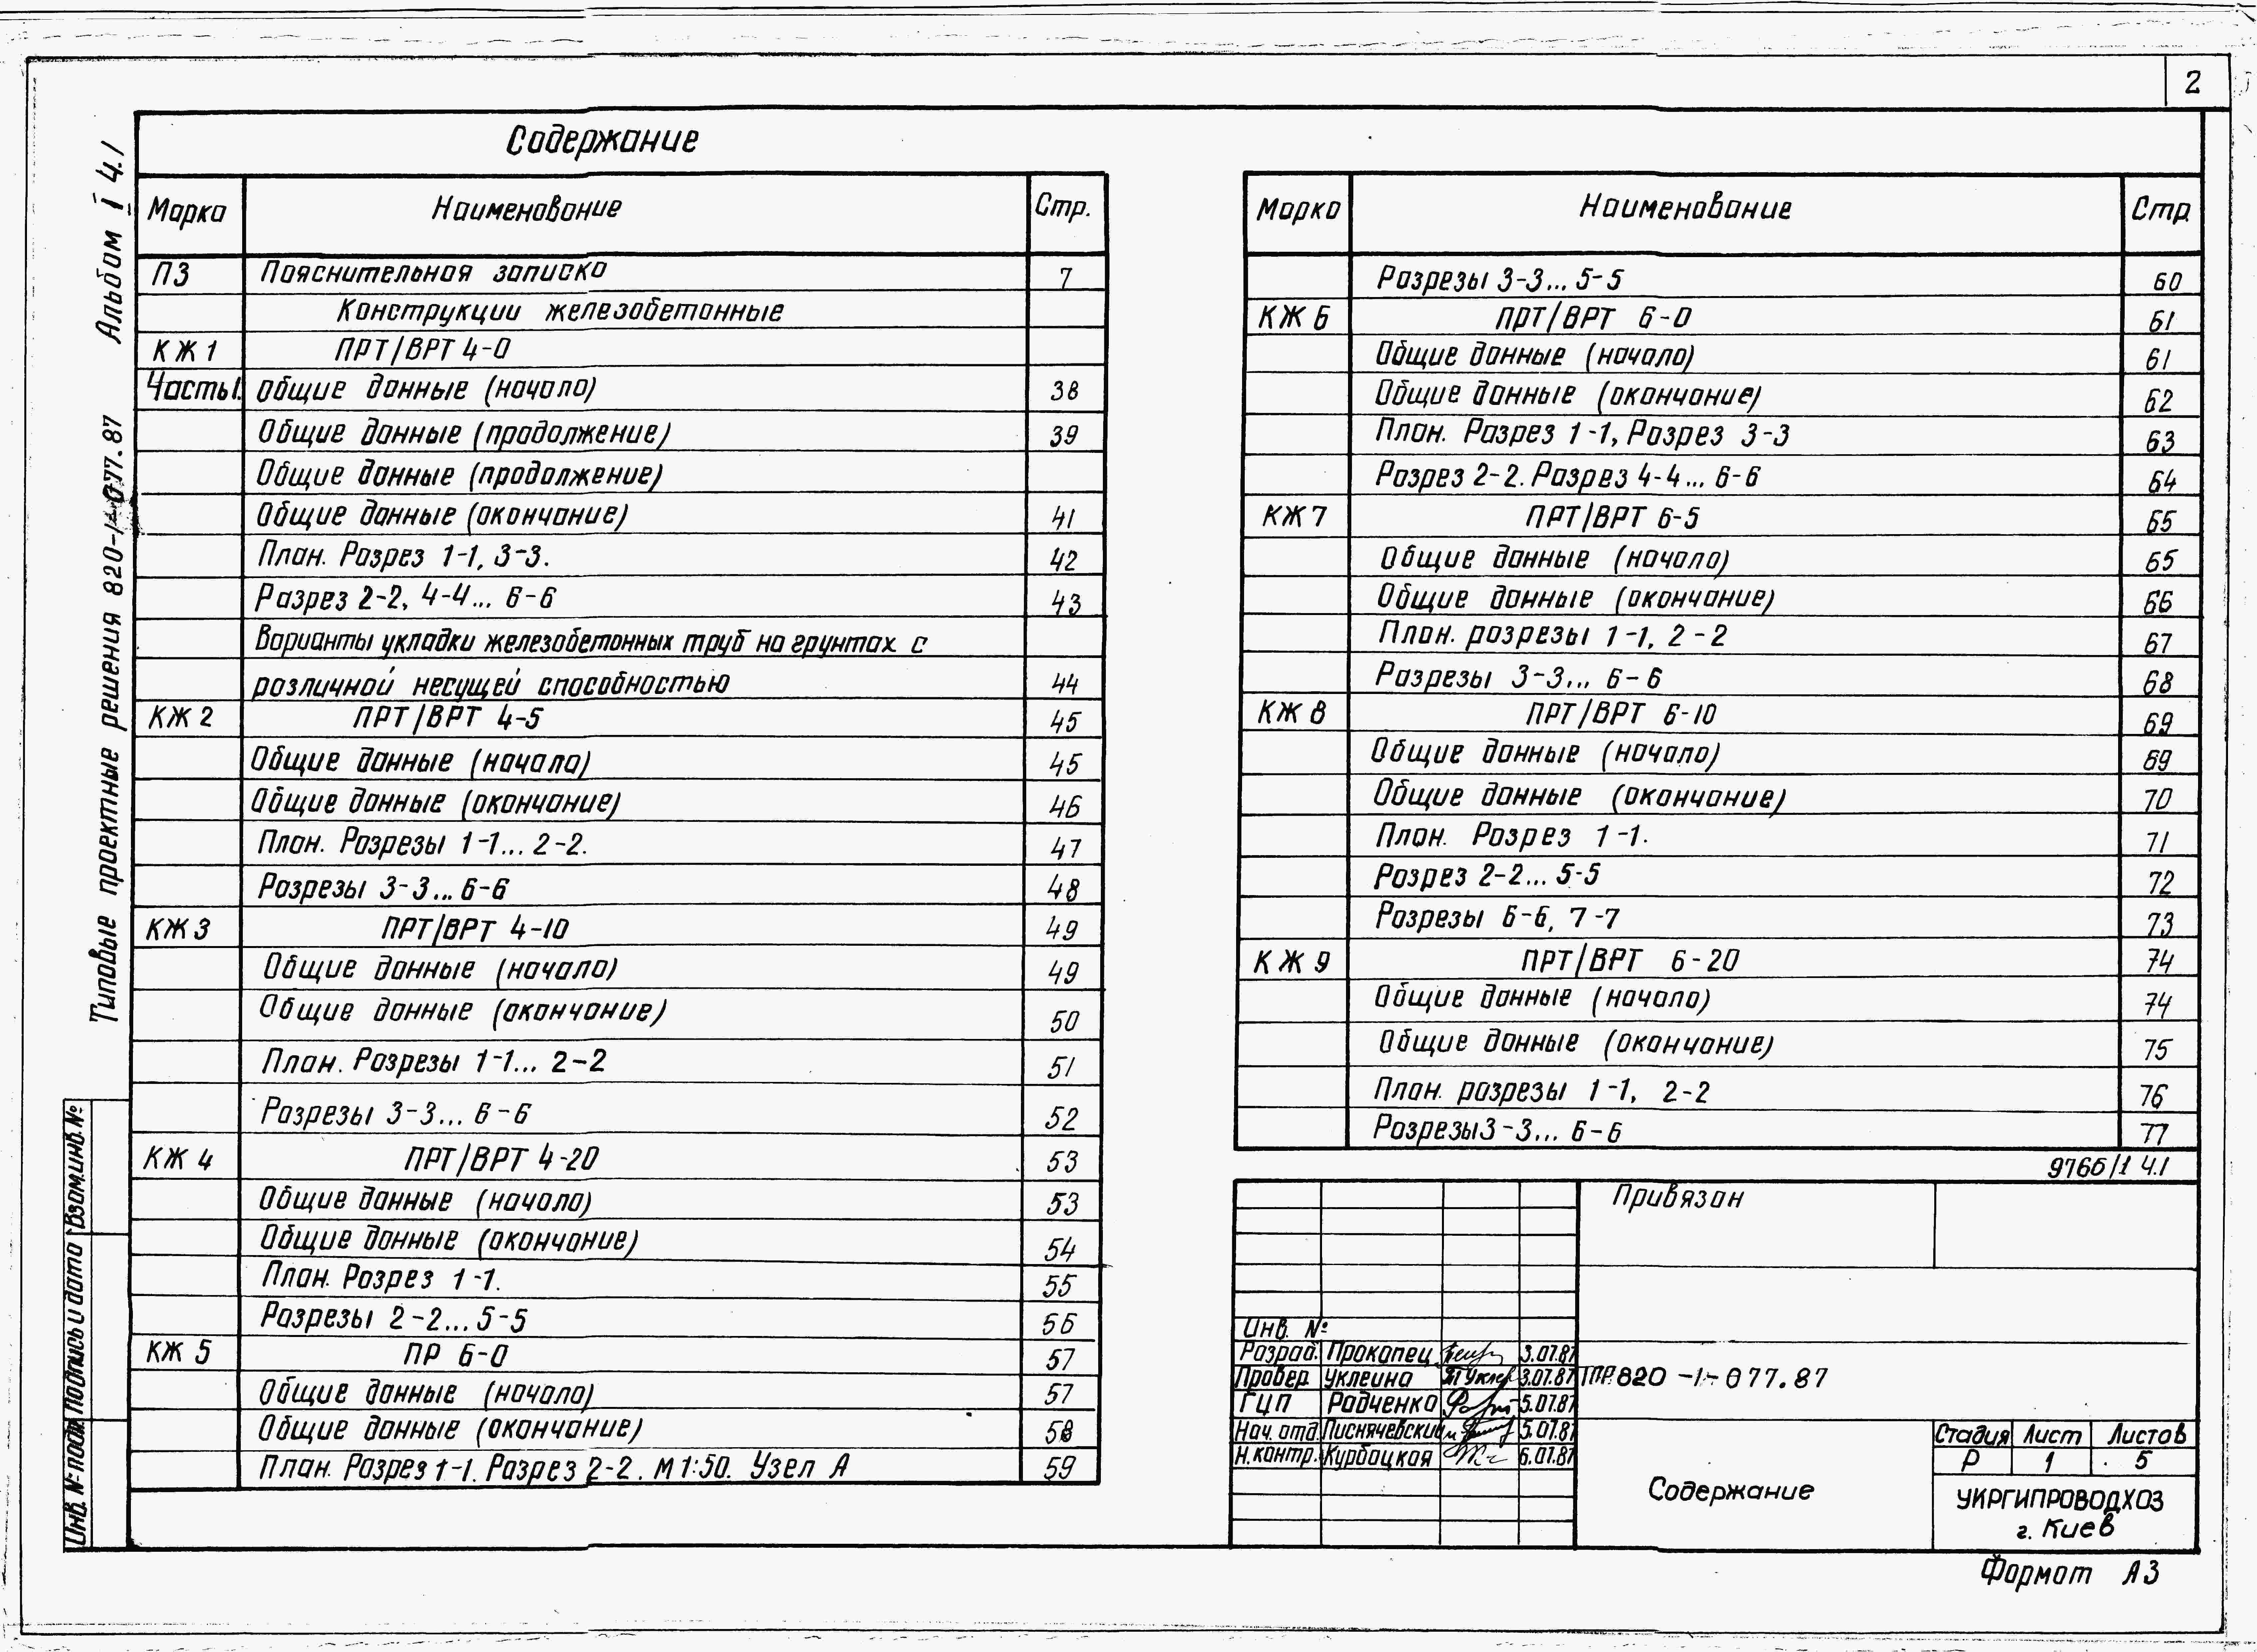 2
Содержание
Марка Наименование Стр.
ПЗ Пояснительная записка 7
Конструкции железобетонные
КЖ 1 ПРТ/ВРТ 4-0
Часть1. Общие данные (начало) 38
Общие данные (продолжение) 39
Общие данные (продолжение)
Общие данные (окончание) 41
План. Разрез 1-1, 3-3. 42
Разрез 2-2, 4-4... 6-6 43
Варианты укладки железобетонных труб на грунтах с
различной несущей способностью 44
КЖ 2 ПРТ/ВРТ 4-5 45
Общие данные (начало) 45
Общие данные (окончание) 46
План. Разрезы 1-1... 2-2. 47
Разрезы 3-3... 6-6 48
КЖ 3 ПРТ/ВРТ 4-10 49
Общие данные (начало) 49
Общие данные (окончание) 50
План. Разрезы 1-1... 2-2 51
Разрезы 3-3... 6-6 52
КЖ 4 ПРТ/ВРТ 4-20 53
Общие данные (начало) 53
Общие данные (окончание) 54
План. Разрез 1-1. 55
Разрезы 2-2... 5-5 56
КЖ 5 ПР 6-0 57
Общие данные (начало) 57
Общие данные (окончание) 58
План. Разрез 1-1. Разрез 2-2. М 1:50. Узел А 59
Марка Наименование Стр.
Разрезы 3-3... 5-5 60
КЖ 6 ПРТ/ВРТ 6-0 61
Общие данные (начало) 61
Общие данные (окончание) 62
План. Разрез 1-1, Разрез 3-3 63
Разрез 2-2. Разрез 4-4... 6-6 64
КЖ 7 ПРТ/ВРТ 6-5 65
Общие данные (начало) 65
Общие данные (окончание) 66
План. разрезы 1-1, 2-2 67
Разрезы 3-3... 6-6 68
КЖ 8 ПРТ/ВРТ 6-10 69
Общие данные (начало) 69
Общие данные (окончание) 70
План. Розрез 1-1. 71
Розрез 2-2... 5-5 72
Разрезы 6-6, 7-7 73
КЖ 9 ПРТ/ВРТ 6-20 74
Общие данные (начало) 74
Общие данные (окончание) 75
План. разрезы 1-1, 2-2 76
Разрезы 3-3... 6-6 77
9766/1 Ч.1
Привязан
Инв. №
Разраб. Прокопец 3.07.87
Провер. Уклеина 3.07.87
ГИП Радченко 5.07.87
Нач. отд. Писнячевский 5.07.87
Н. контр. Курбацкая 6.07.87
ТПР 820-1-077.87
Содержание
Стадия Лист Листов
Р 1 5
УКРГИПРОВОДХОЗ
г. Киев
Формат А3
Типовые проектные решения 820-1-077.87 Альбом I Ч.1
Инв. № подл. Подпись и дата Взам.инв. №